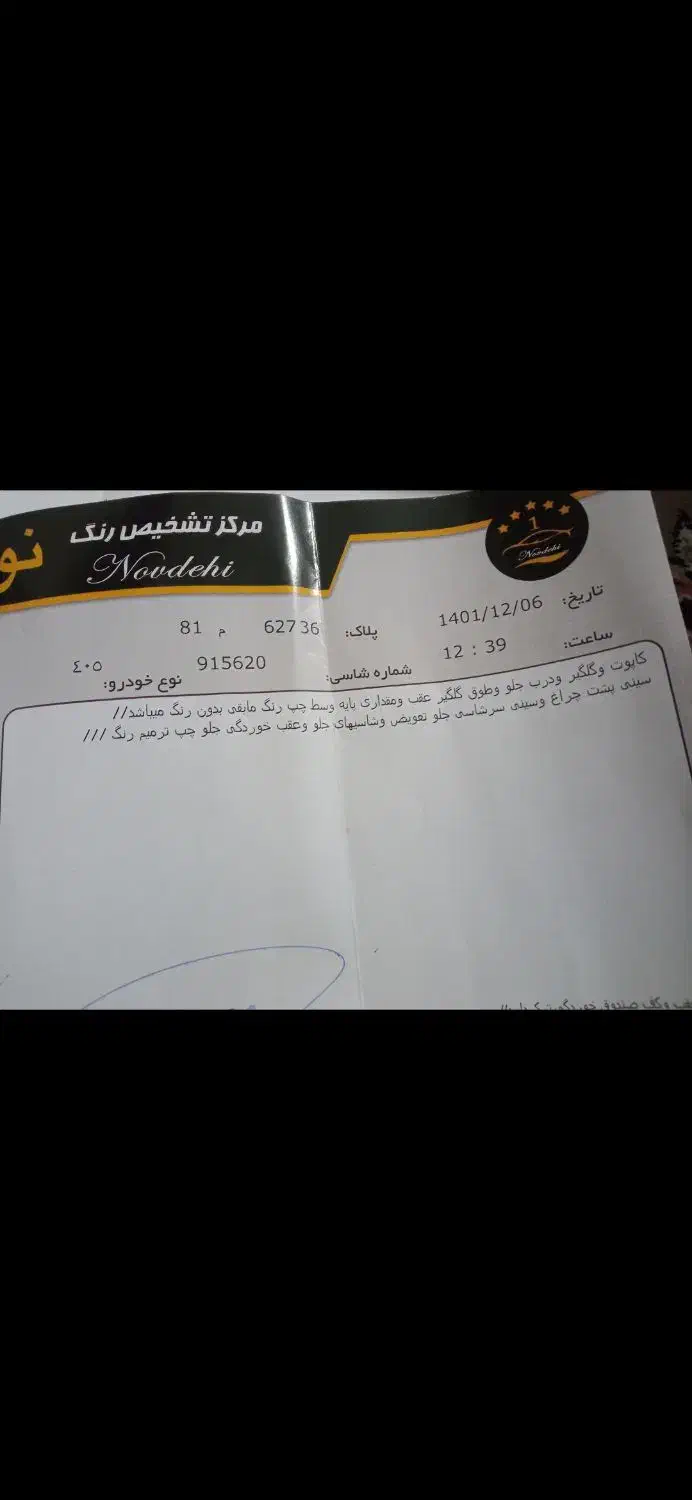 نو
مرکز تشخیص رنگ
Novdehi
1
Novdehi
تاریخ: 1401/12/06
پلاک: 62736 م 81
ساعت: 12 : 39
شماره شاسی: 915620
نوع خودرو: ٤٠٥
کاپوت وگلگیر ودرب جلو وطوق گلگیر عقب ومقداری پایه وسط چپ رنگ مابقی بدون رنگ میباشد//
سینی پشت چراغ وسینی سرشاسی جلو تعویض وشاسیهای جلو وعقب خوردگی جلو چپ ترمیم رنگ ///
وکف صندوق